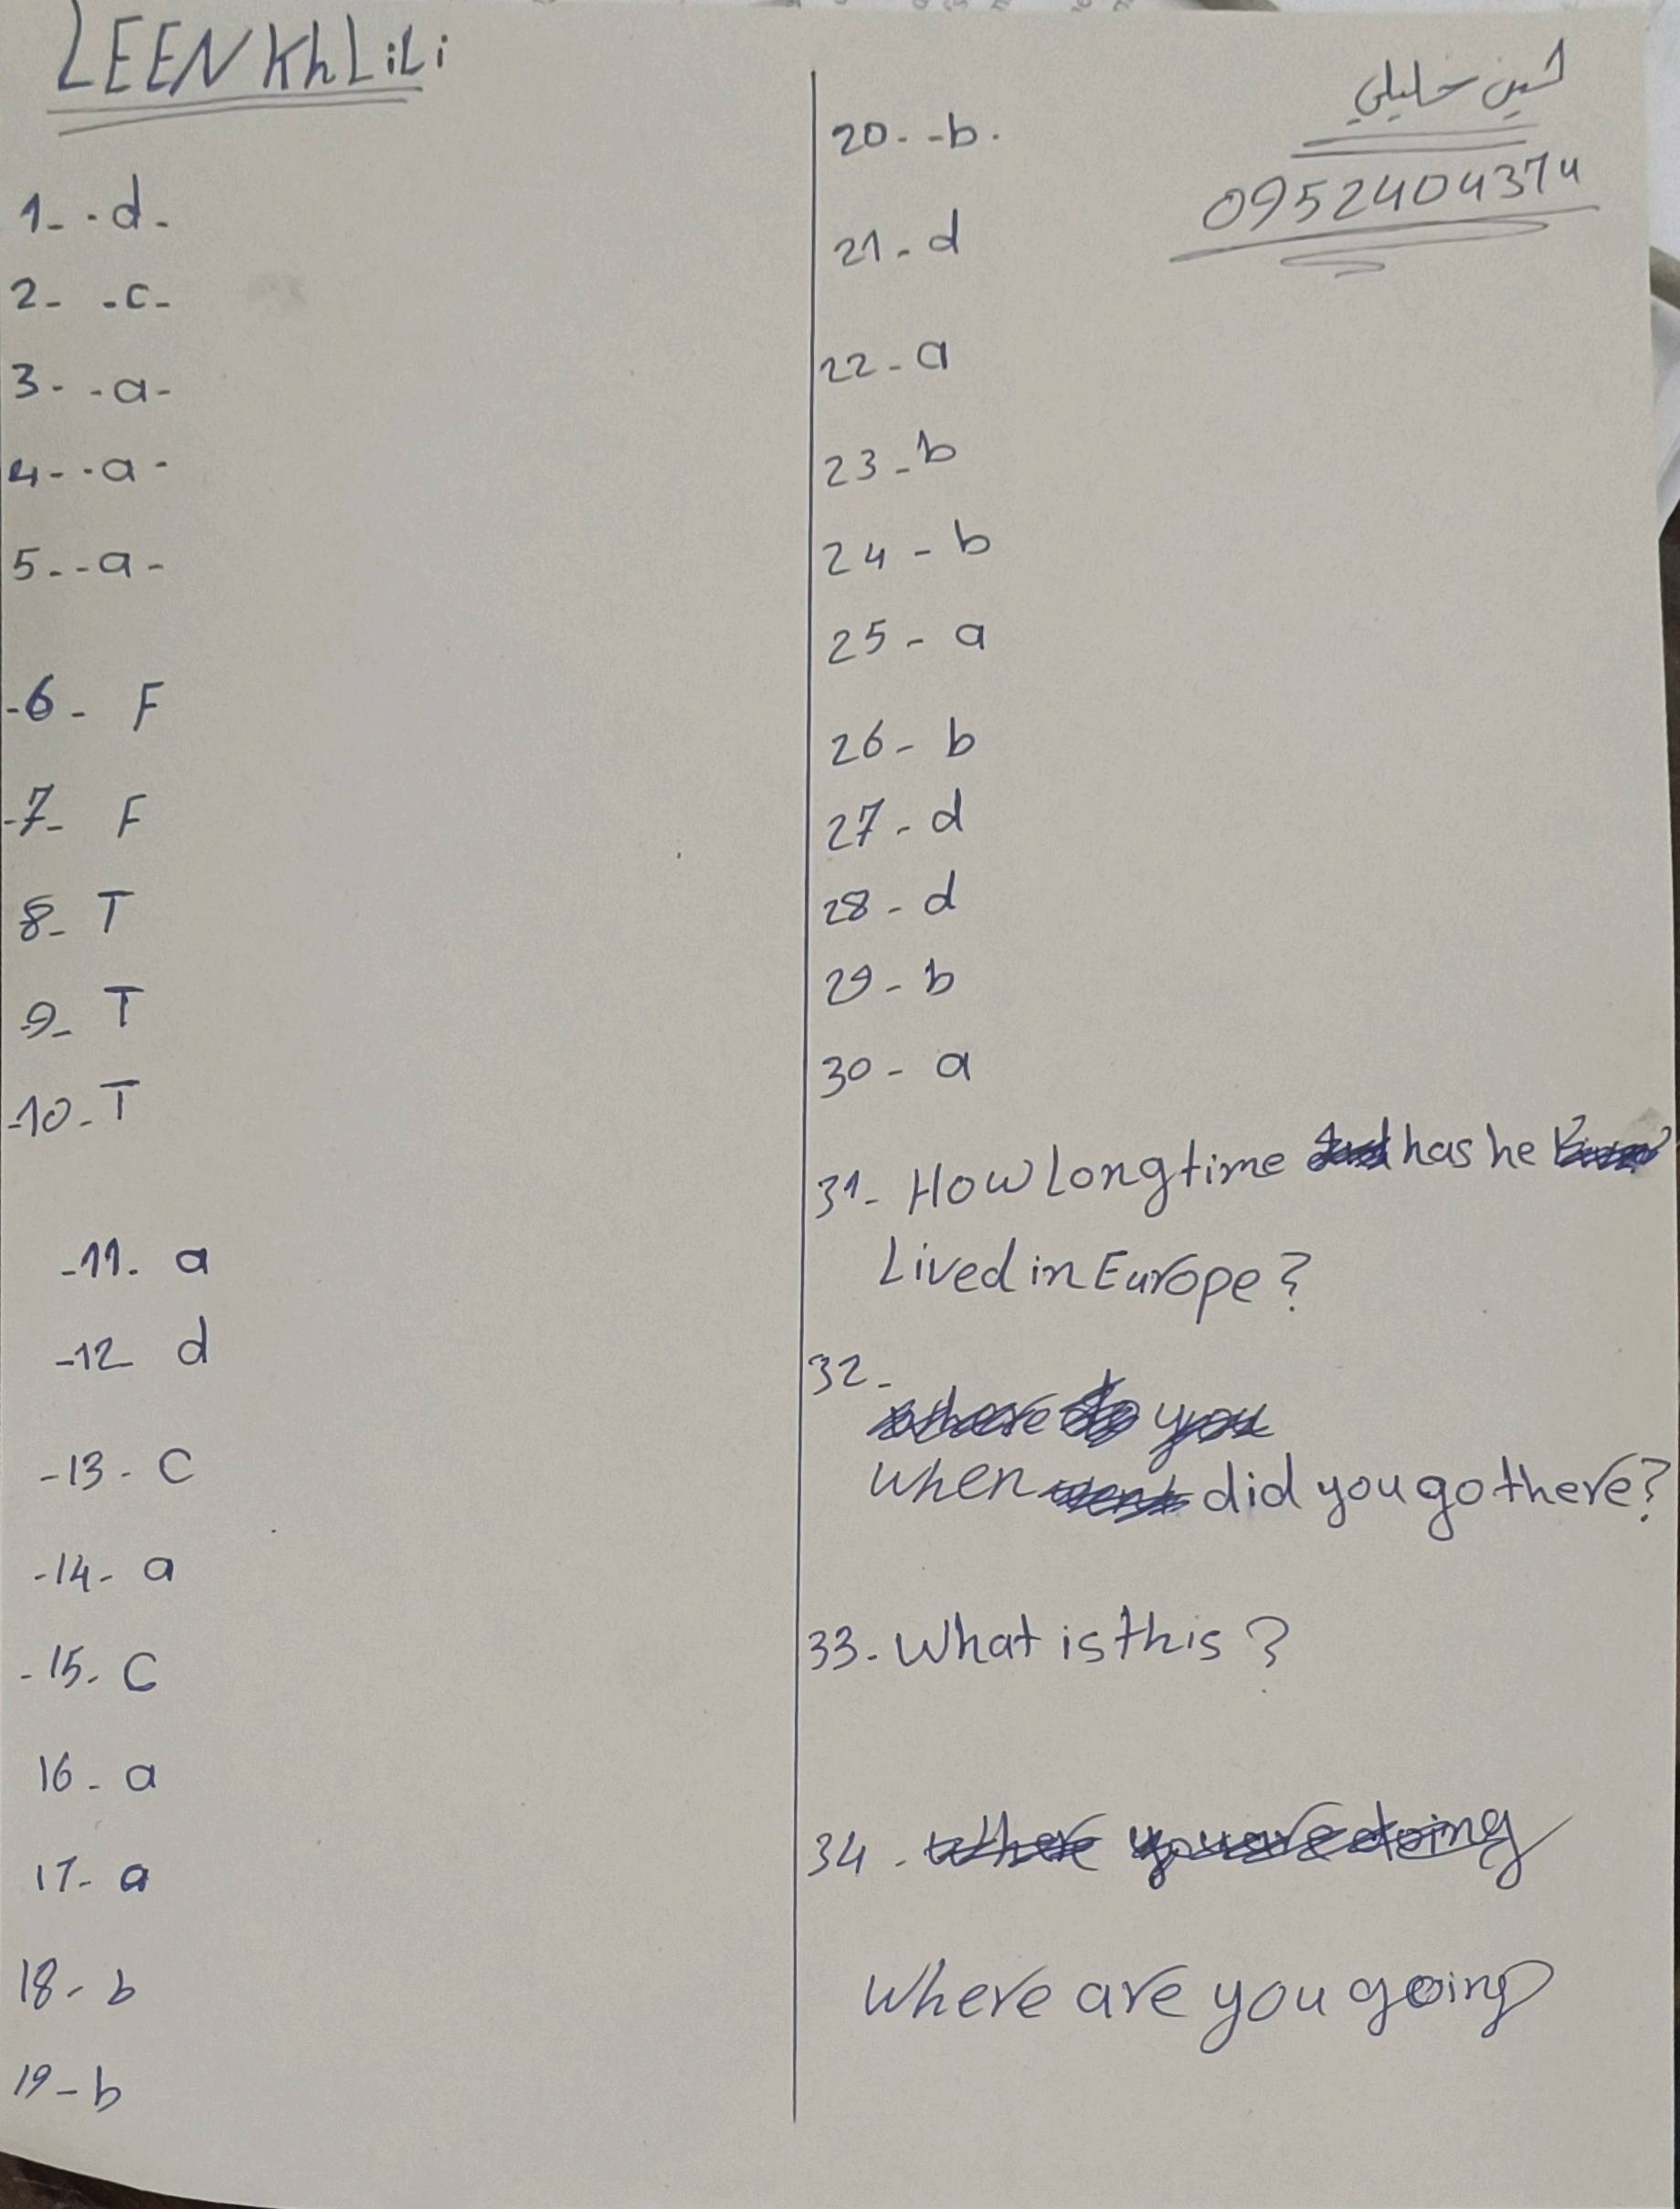 LEEN KhLiLi
1- - d -
2- - c -
3- - a -
4- - a -
5- - a -
-6- F
-7- F
8- T
-9- T
-10- T
-11- a
-12- d
-13- C
-14- a
-15- C
16- a
17- a
18- b
19- b
لين خليلي
0952404374
20- - b .
21- d
22- a
23- b
24- b
25- a
26- b
27- d
28- d
29- b
30- a
31- How Long time has he
Lived in Europe?
32-
when did you go there?
33- What is this?
34-
where are you going